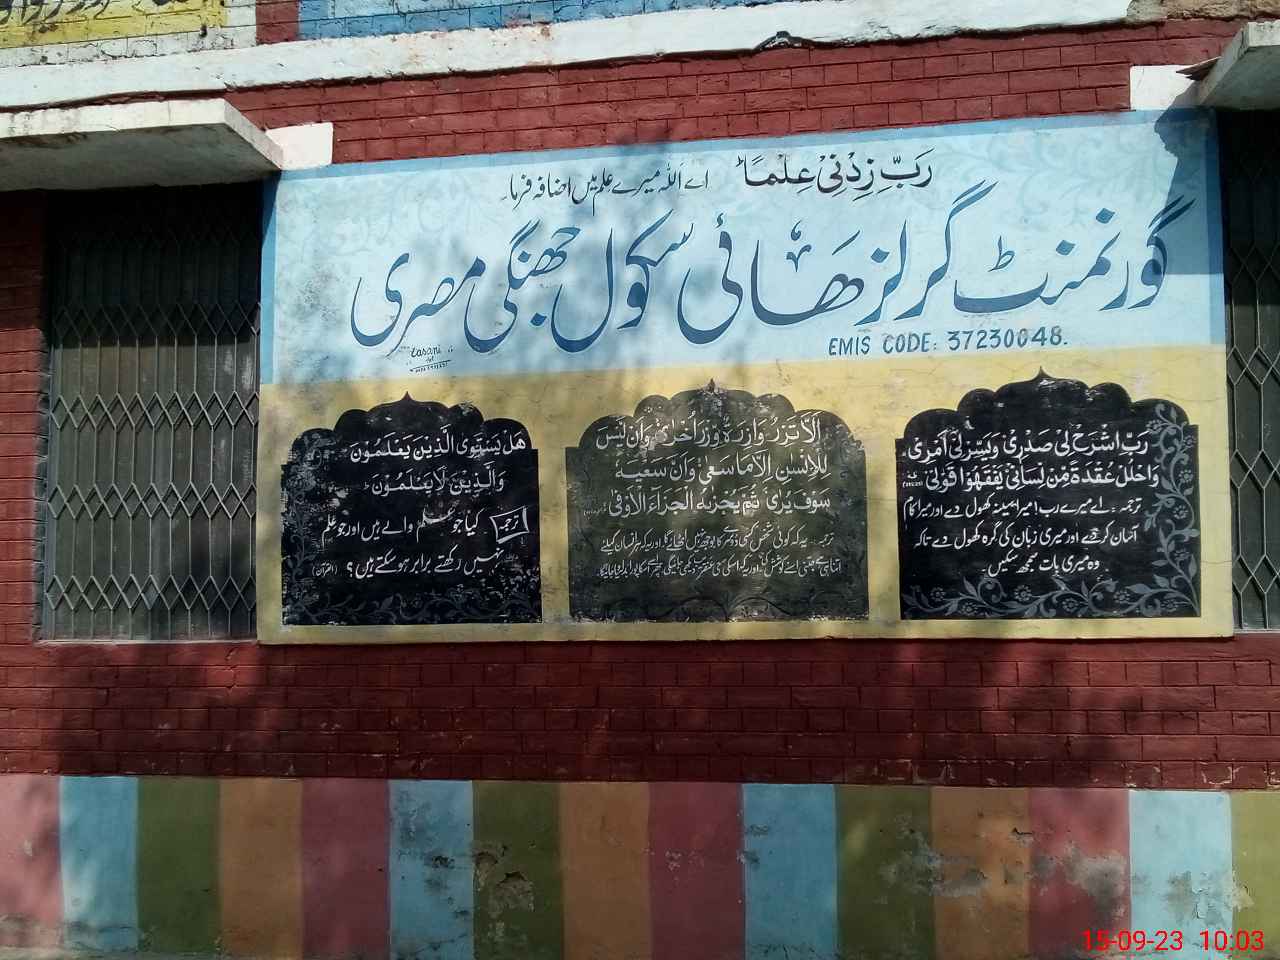 رَبِّ زِدْنِیْ عِلْمًا
اے اللہ میرے علم میں اضافہ فرما۔
گورنمنٹ گرلز ھائی سکول جھنگی مصری
EMIS CODE: 37230048.
رَبِّ اشْرَحْ لِیْ صَدْرِیْ وَیَسِّرْ لِیْ اَمْرِیْ
وَاحْلُلْ عُقْدَةً مِّنْ لِّسَانِیْ یَفْقَهُوْا قَوْلِیْ
ترجمہ: اے میرے رب! میرا سینہ کھول دے اور میرا کام
آسان کر دے اور میری زبان کی گرہ کھول دے تاکہ
وہ میری بات سمجھ سکیں۔
اَلَّا تَزِرُ وَازِرَةٌ وِّزْرَ اُخْرٰی وَاَنْ لَّیْسَ
لِلْاِنْسٰنِ اِلَّا مَا سَعٰی وَاَنَّ سَعْیَهٗ
سَوْفَ یُرٰی ثُمَّ یُجْزٰىهُ الْجَزَآءَ الْاَوْفٰی
ترجمہ: یہ کہ کوئی شخص کسی دوسرے کا بوجھ نہیں اٹھائے گا اور یہ کہ ہر انسان کیلئے
هَلْ یَسْتَوِی الَّذِیْنَ یَعْلَمُوْنَ
وَالَّذِیْنَ لَا یَعْلَمُوْنَ
ترجمہ کیا جو علم والے ہیں اور جو علم
نہیں رکھتے برابر ہو سکتے ہیں؟ (القرآن)
15-09-23 10:03